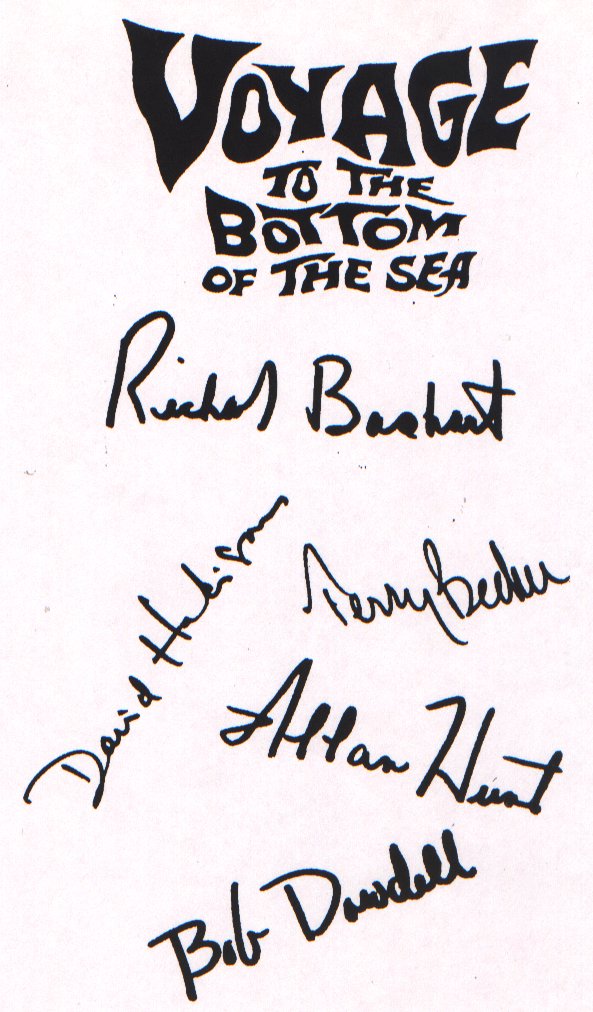 VOYAGE
TO THE
BOTTOM
OF THE SEA
Richard Basehart
David Hedison
Terry Becker
Allan Hunt
Bob Dowdell